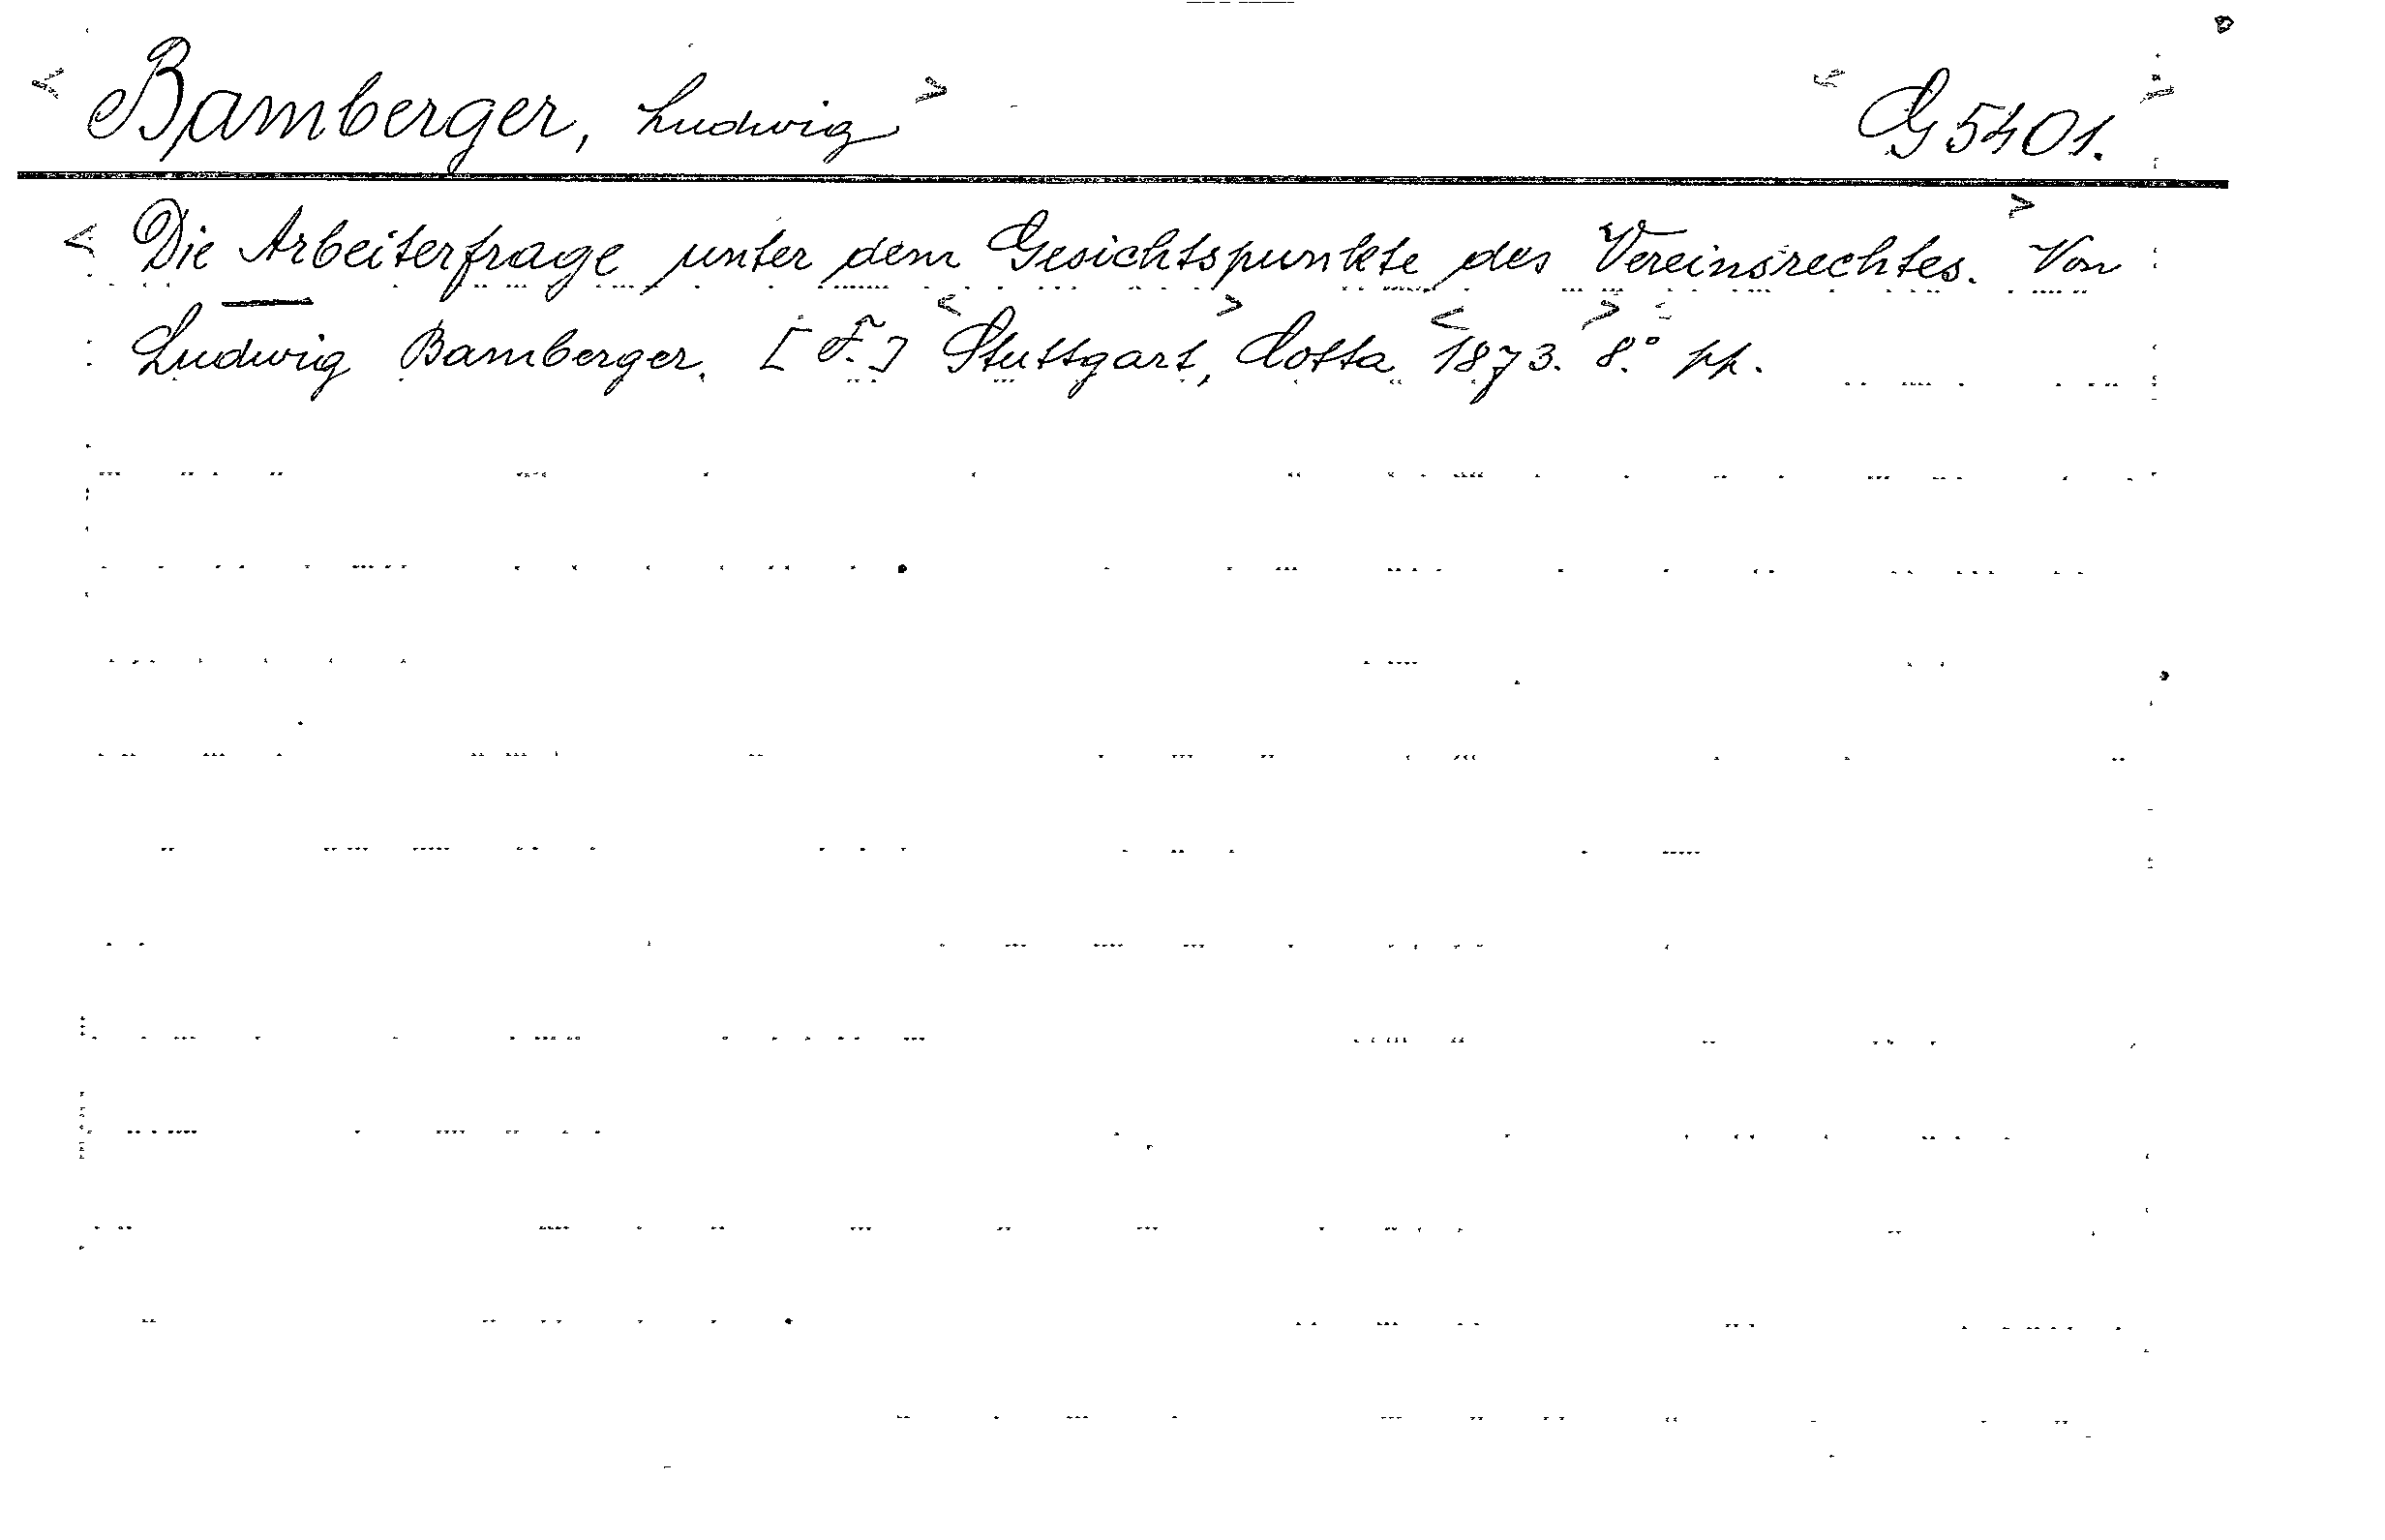 < Bamberger, Ludwig > < G 5401. >
< Die Arbeiterfrage unter dem Gesichtspunkte des Vereinsrechtes. > Von
Ludwig Bamberger. [F.] < Stuttgart, > Cotta < 1873. > 8.° pp.